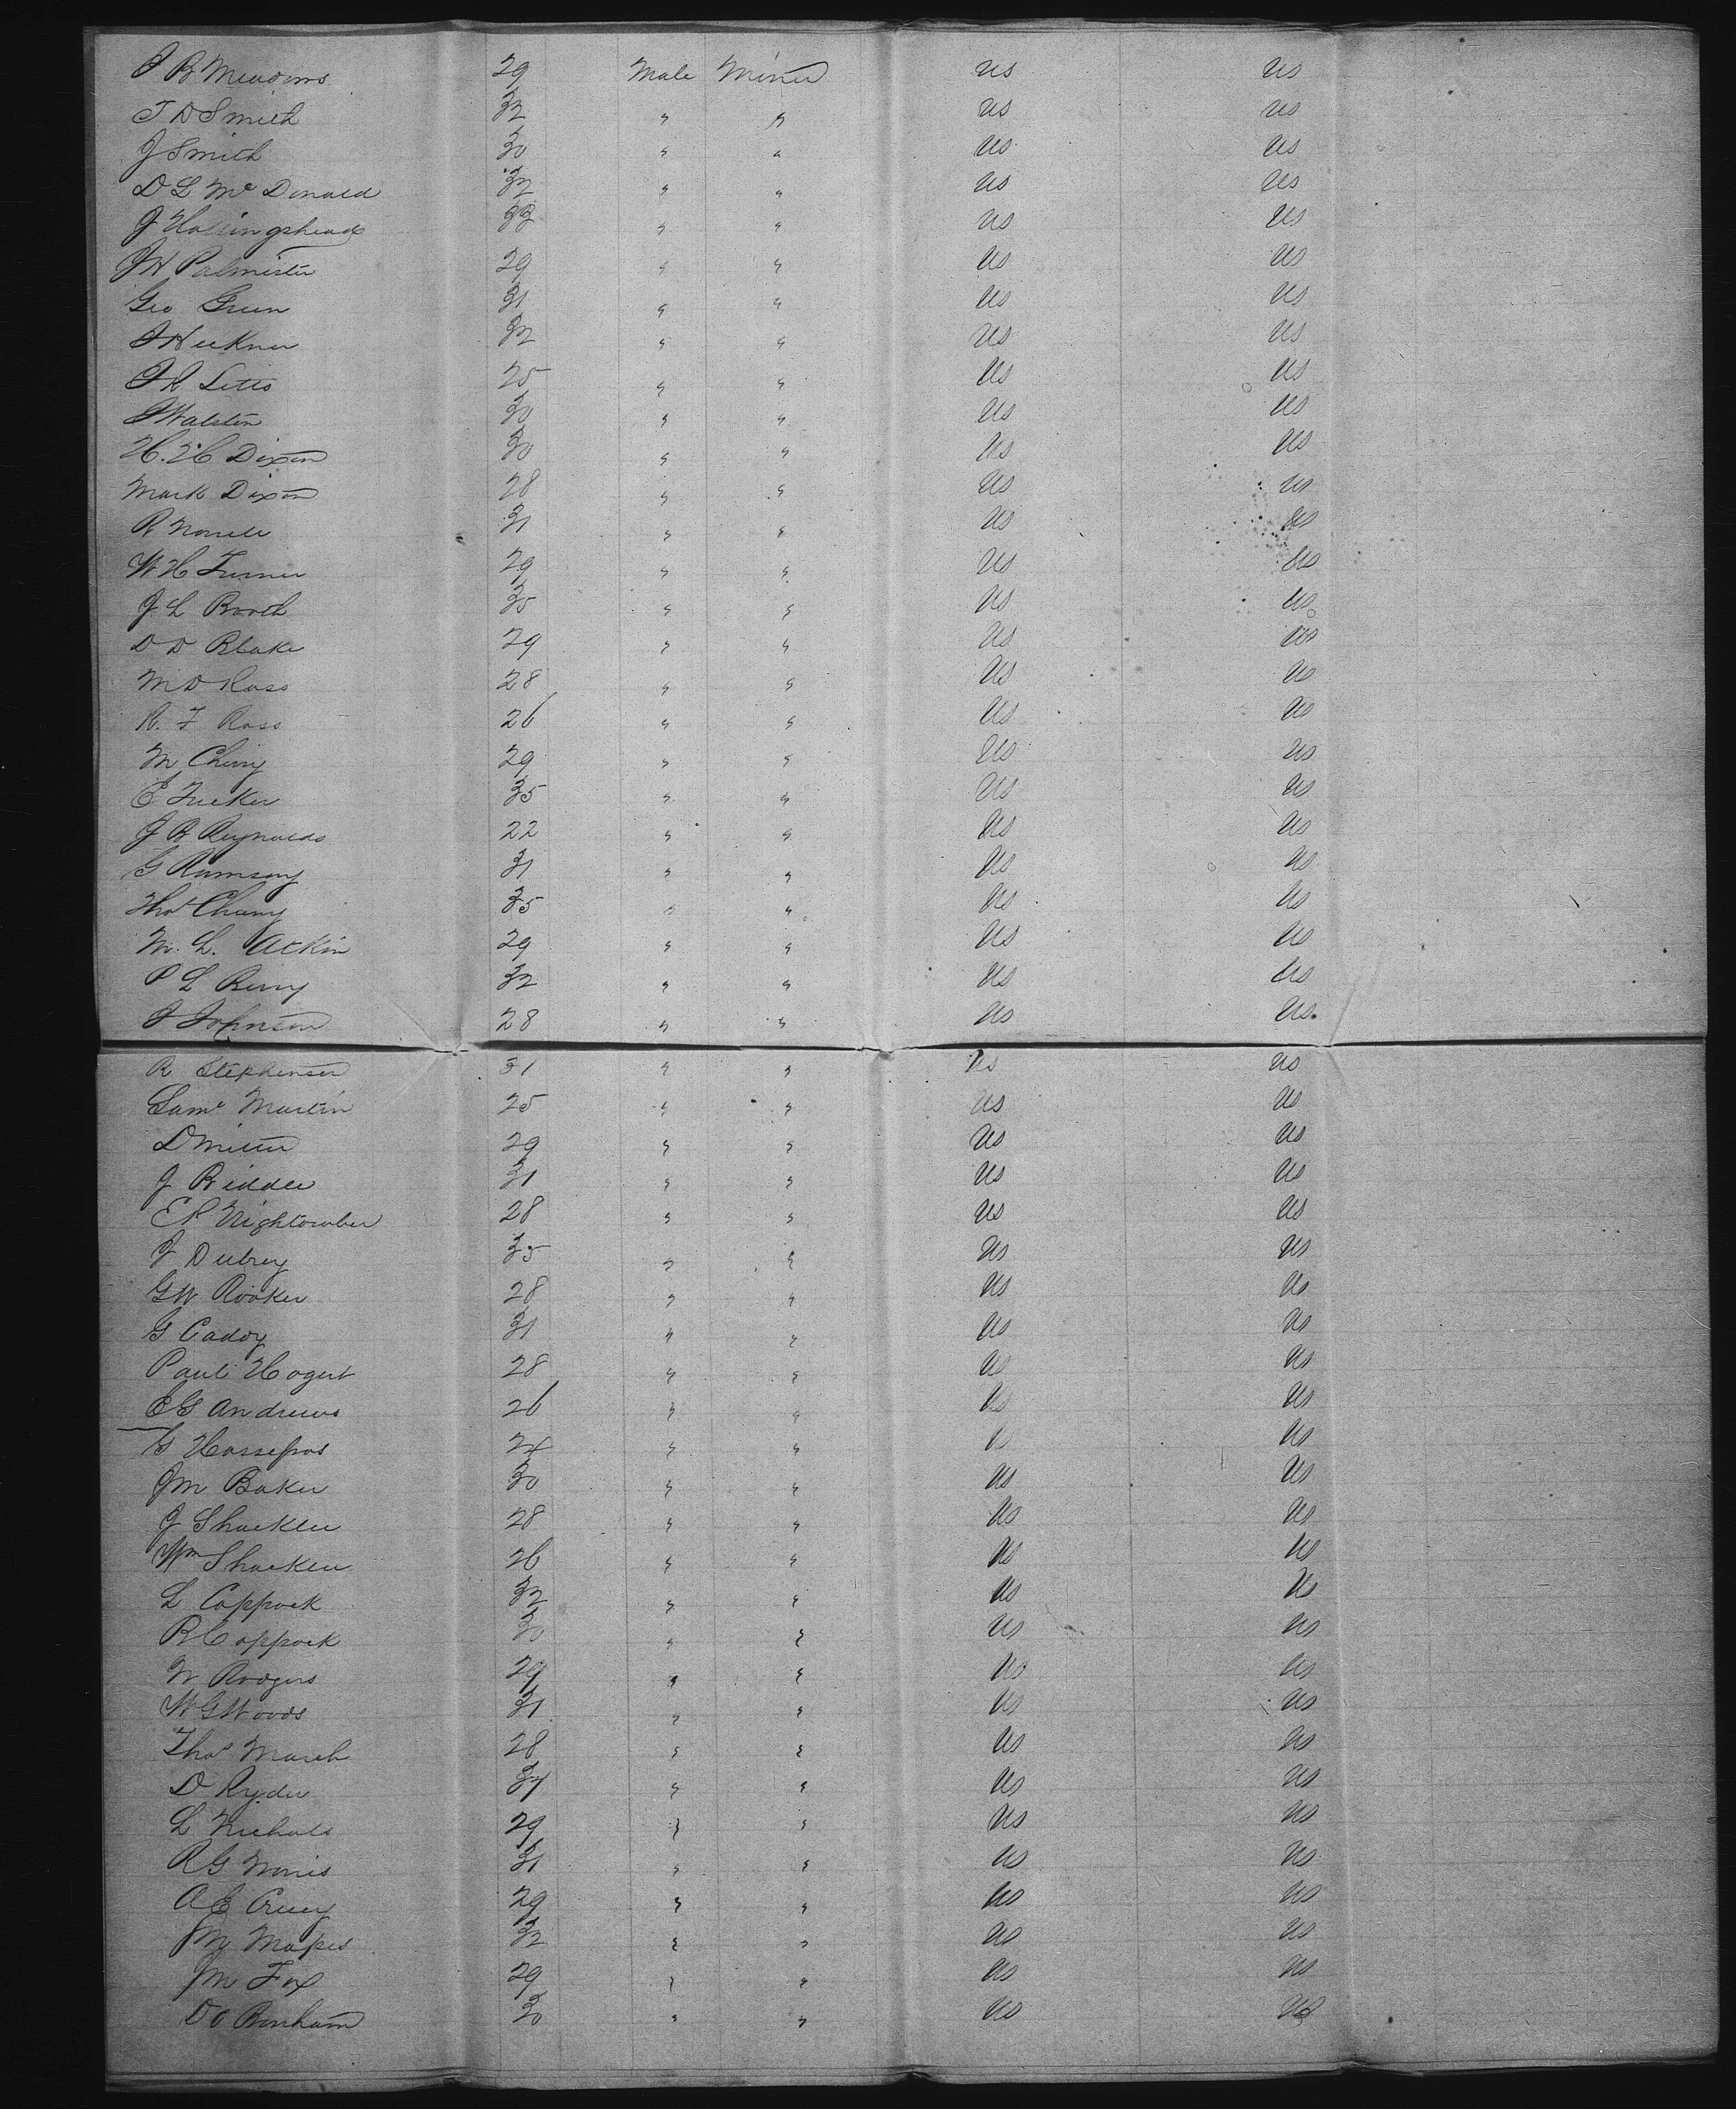 J B Meadows 29 Male Miner US US
T D Smith 32 " " US US
J Smith 30 " " US US
D L Mc Donald 32 " " US US
J Hollingshead 33 " " US US
J H Palmister 29 " " US US
Geo Green 31 " " US US
J 32 " " US US
J R Letts 25 " " US US
J Walston 30 " " US US
H. H Dixon 30 " " US US
Mark Dixon 28 " " US US
R 31 " " US US
W H Turner 29 " " US US
J L Booth 35 " " US US
D D Blake 29 " " US US
M D Ross 28 " " US US
R. F Ross 26 " " US US
M Cherry 29 " " US US
E Tucker 35 " " US US
J B Reynolds 22 " " US US
G Ramsay 31 " " US US
Thos 35 " " US US
M. L. Atkin 29 " " US US
P L Berry 32 " " US US
J Johnson 28 " " US US
R Stephenson 31 " " US US
Saml Martin 25 " " US US
D Miller 29 " " US US
J Riddle 31 " " US US
E R 28 " " US US
J 35 " " US US
G W Rooker 28 " " US US
G Cadoy 31 " " US US
Paul Hogert 28 " " US US
E G Andrews 26 " " US US
G 24 " " US
J M Baker 30 " " US US
J Shackler 28 " " US US
Wm Shackler 26 " " US US
L Coppock 32 " " US US
B Coppock 30 " " US US
W Rodgers 29 " " US US
W G Woods 31 " " US US
Thos March 28 " " US US
D Ryder 34 " " US US
L Nichols 29 " " US US
R G Norris 31 " " US US
A E 29 " " US US
M Mapes 32 " " US US
J M Fox 29 " " US US
D C Bonham 30 " " US US